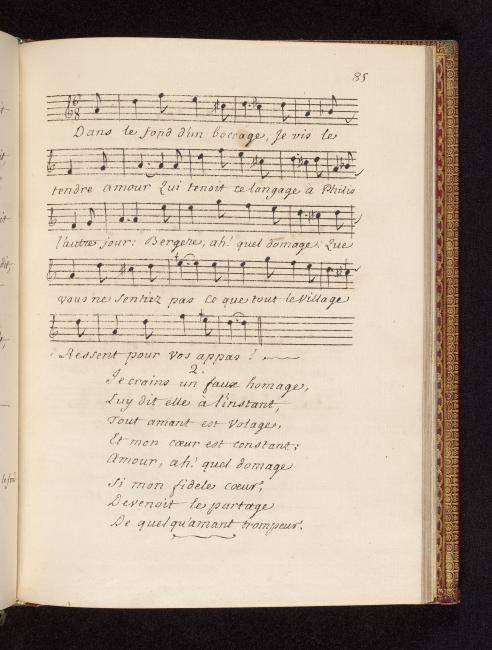 85
Dans le fond d'un boccage, Je vis le
tendre amour Qui tenoit ce langage à Philis
l'autre jour: Bergere, ah! quel domage: Que
vous ne Sentiez pas Ce que tout le Village
Ressent pour vos appas!
2.
Je crains un faux homage,
Luy dit elle à l'instant,
Tout amant est Volage,
Et mon cœur est constant:
Amour, ah! quel domage
Si mon fidele cœur,
Devenoit le partage
De quelqu'amant trompeur.